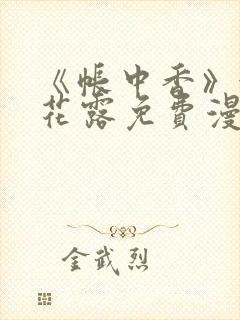 《帐中香》
花露免费漫
金武烈